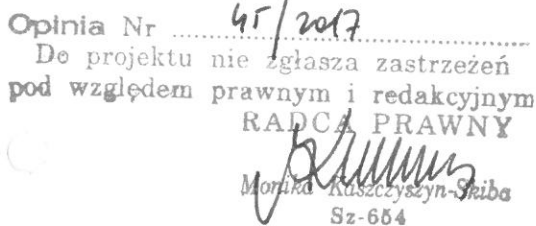 Opinia Nr 45/2017
Do projektu nie zgłasza zastrzeżeń
pod względem prawnym i redakcyjnym
RADCA PRAWNY
Monika Kaszczyszyn-Skiba
Sz-654